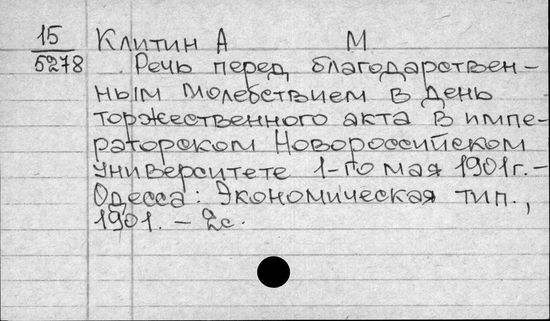 15 Клитин А М
5278 Речь перед благодарствен-
ным молебствием в день
торжественного акта в импе-
раторском Новороссийском
университете 1-го мая 1901г.-
Одесса: Экономическая тип.,
1901. - 2с.